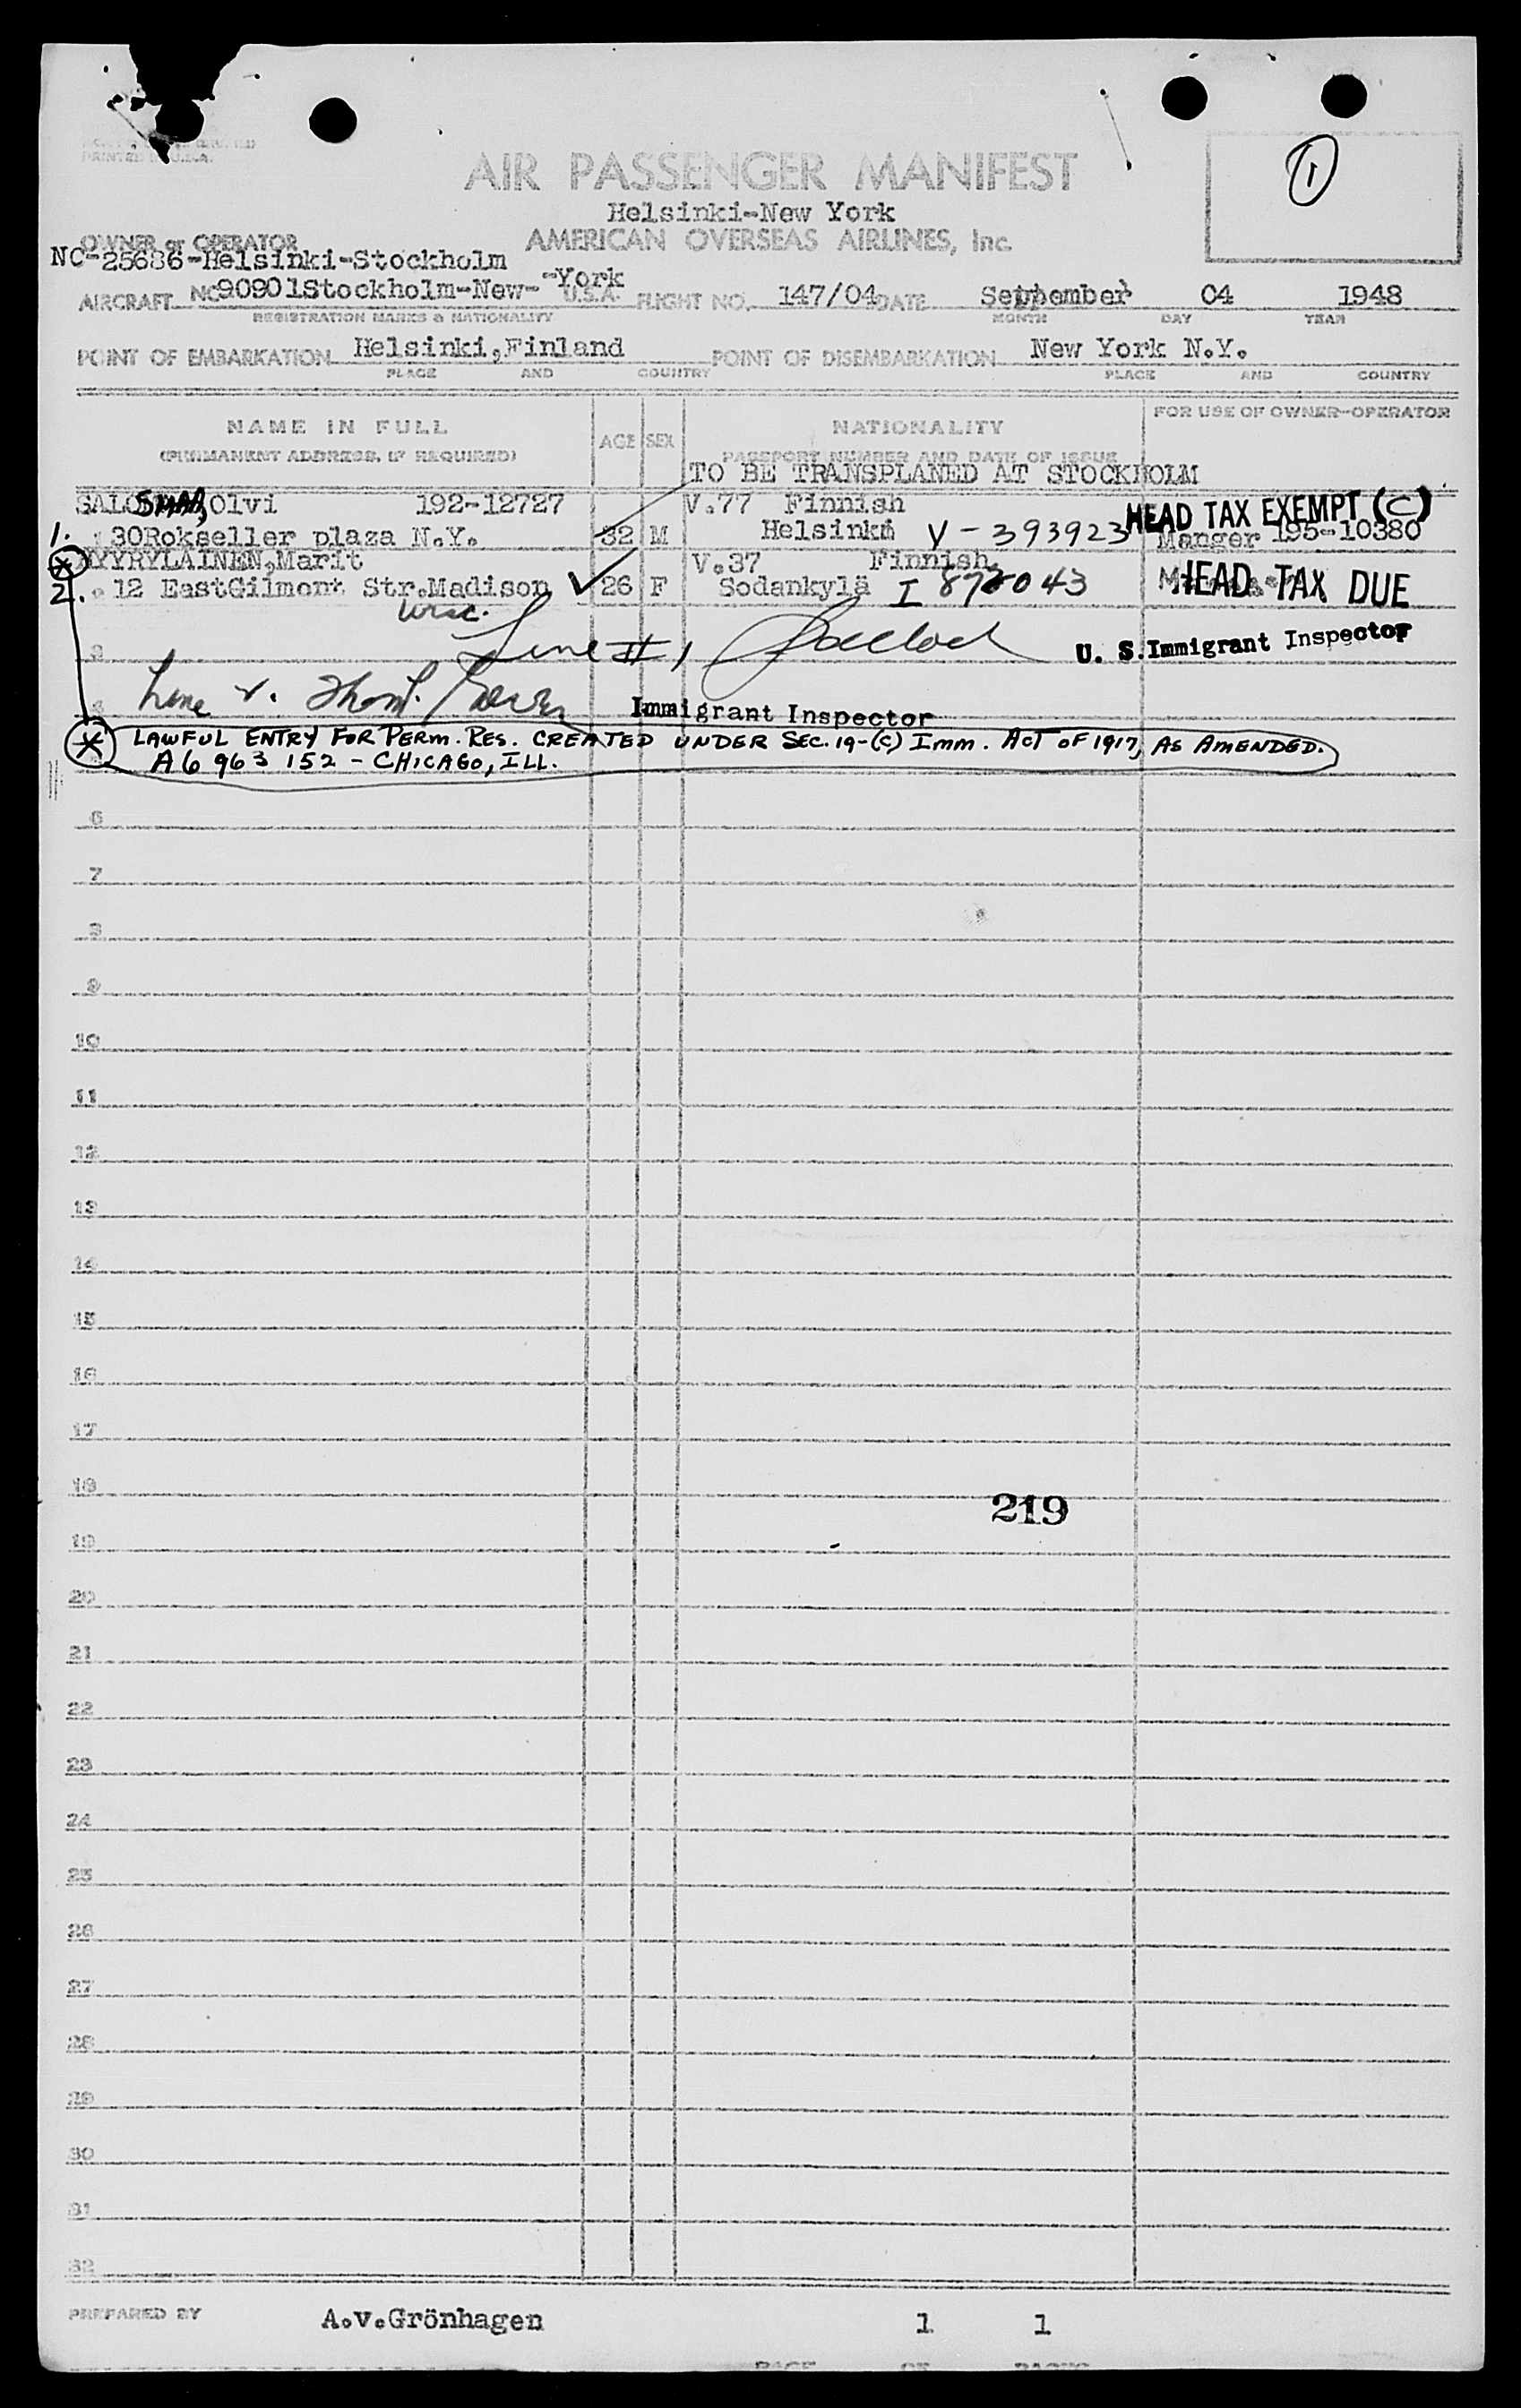 PRINTED IN U.S.A.
1
AIR PASSENGER MANIFEST
Helsinki-New York
OWNER or OPERATOR AMERICAN OVERSEAS AIRLINES, Inc.
NC-25686-Helsinki-Stockholm
AIRCRAFT NC90901Stockholm-New-York U.S.A. FLIGHT NO. 147/04 DATE September 04 1948
REGISTRATION MARKS & NATIONALITY MONTH DAY YEAR
POINT OF EMBARKATION Helsinki,Finland POINT OF DISEMBARKATION New York N.Y.
PLACE AND COUNTRY PLACE AND COUNTRY
NAME IN FULL AGE SEX NATIONALITY FOR USE OF OWNER-OPERATOR
(PERMANENT ADDRESS, IF REQUIRED) PASSPORT NUMBER AND DATE OF ISSUE
TO BE TRANSPLANED AT STOCKHOLM
Olvi 192-12727 V.77 Finnish HEAD TAX EXEMPT (C)
1. 30Rokseller plaza N.Y. 32 M Helsinki V-393923 Manger 195-10380
AYYRYLAINEN,Marit V.37 Finnish
2. 12 EastGilmont Str.Madison 26 F Sodankylä I 872043 HEAD TAX DUE
Wisc.
3 Line # 1 U. S. Immigrant Inspector
4 Line 2. Immigrant Inspector
* LAWFUL ENTRY FOR PERM. RES. CREATED UNDER SEC. 19-(C) IMM. ACT OF 1917, AS AMENDED.
A6 963 152 - CHICAGO, ILL.
6
7
8
9
10
11
12
13
14
15
16
17
18
219
19
20
21
22
23
24
25
26
27
28
29
30
31
32
PREPARED BY A.v.Grönhagen 1 1
PAGE OF PAGES